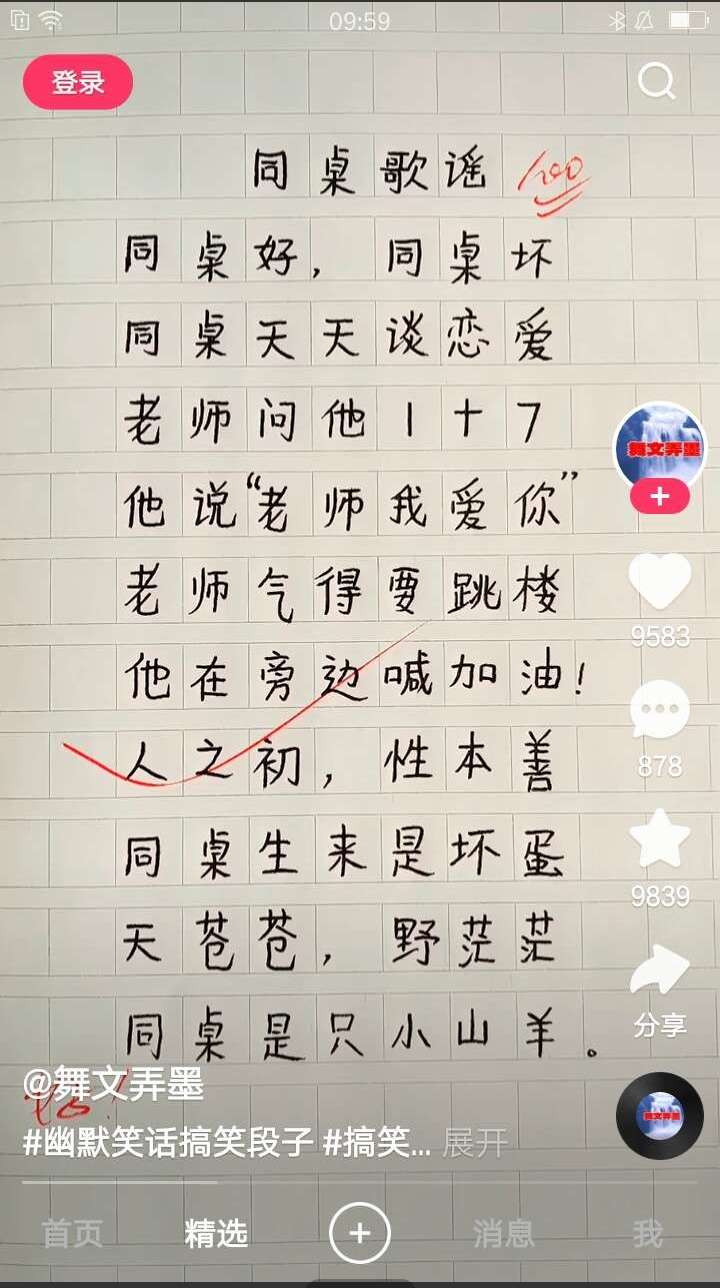 09:59
登录
同桌歌谣
100
同桌好，同桌坏
同桌天天谈恋爱
老师问他1+7
他说“老师我爱你”
老师气得要跳楼
他在旁边喊加油！
人之初，性本善
同桌生来是坏蛋
天苍苍，野茫茫
同桌是只小山羊。
舞文弄墨
9583
878
9839
分享
@舞文弄墨
#幽默笑话搞笑段子 #搞笑... 展开
舞文弄墨
首页 精选 消息 我